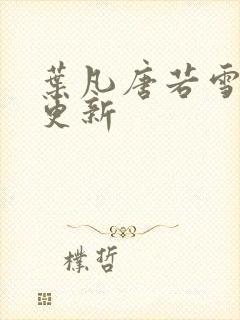 葉凡唐若雪
更新
樸哲